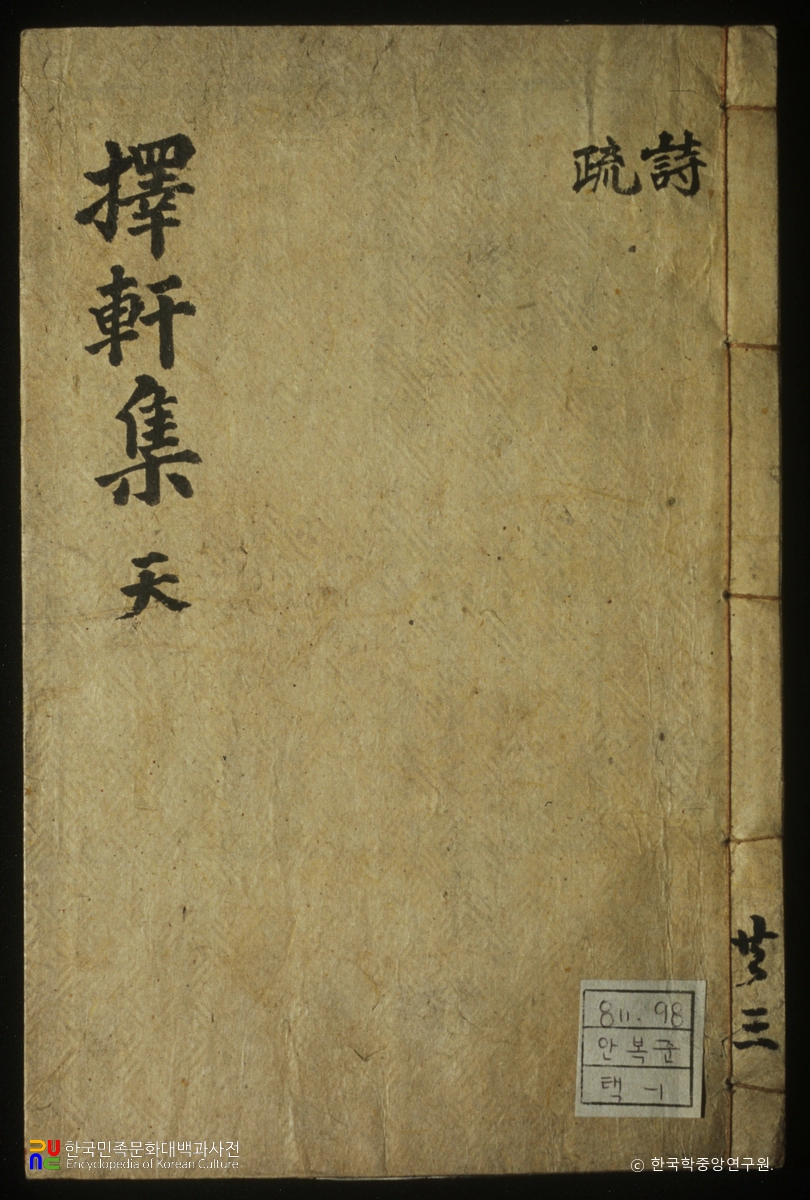 擇軒集 天
詩
疏
共三
811.98
안복준
택 -1
한국민족문화대백과사전
Encyclopedia of Korean Culture
© 한국학중앙연구원.